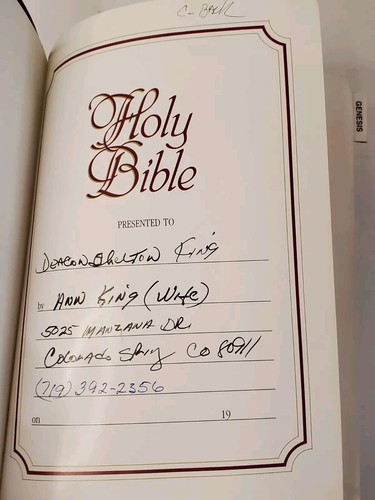 C-Back
Holy
Bible
GENESIS
PRESENTED TO
Deacon Shelton King
by Ann King (Wife)
5025 Manzana DR.
Colorado Spring CO 80911
(719) 392-2356
on 19